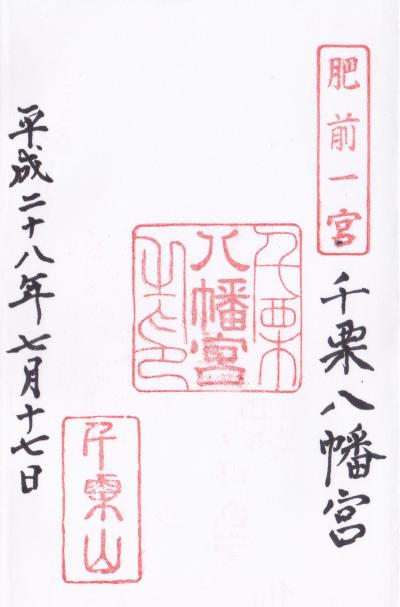 肥前一宮
千栗八幡宮
千栗
八幡宮
之印
千栗山
平成二十八年七月十七日